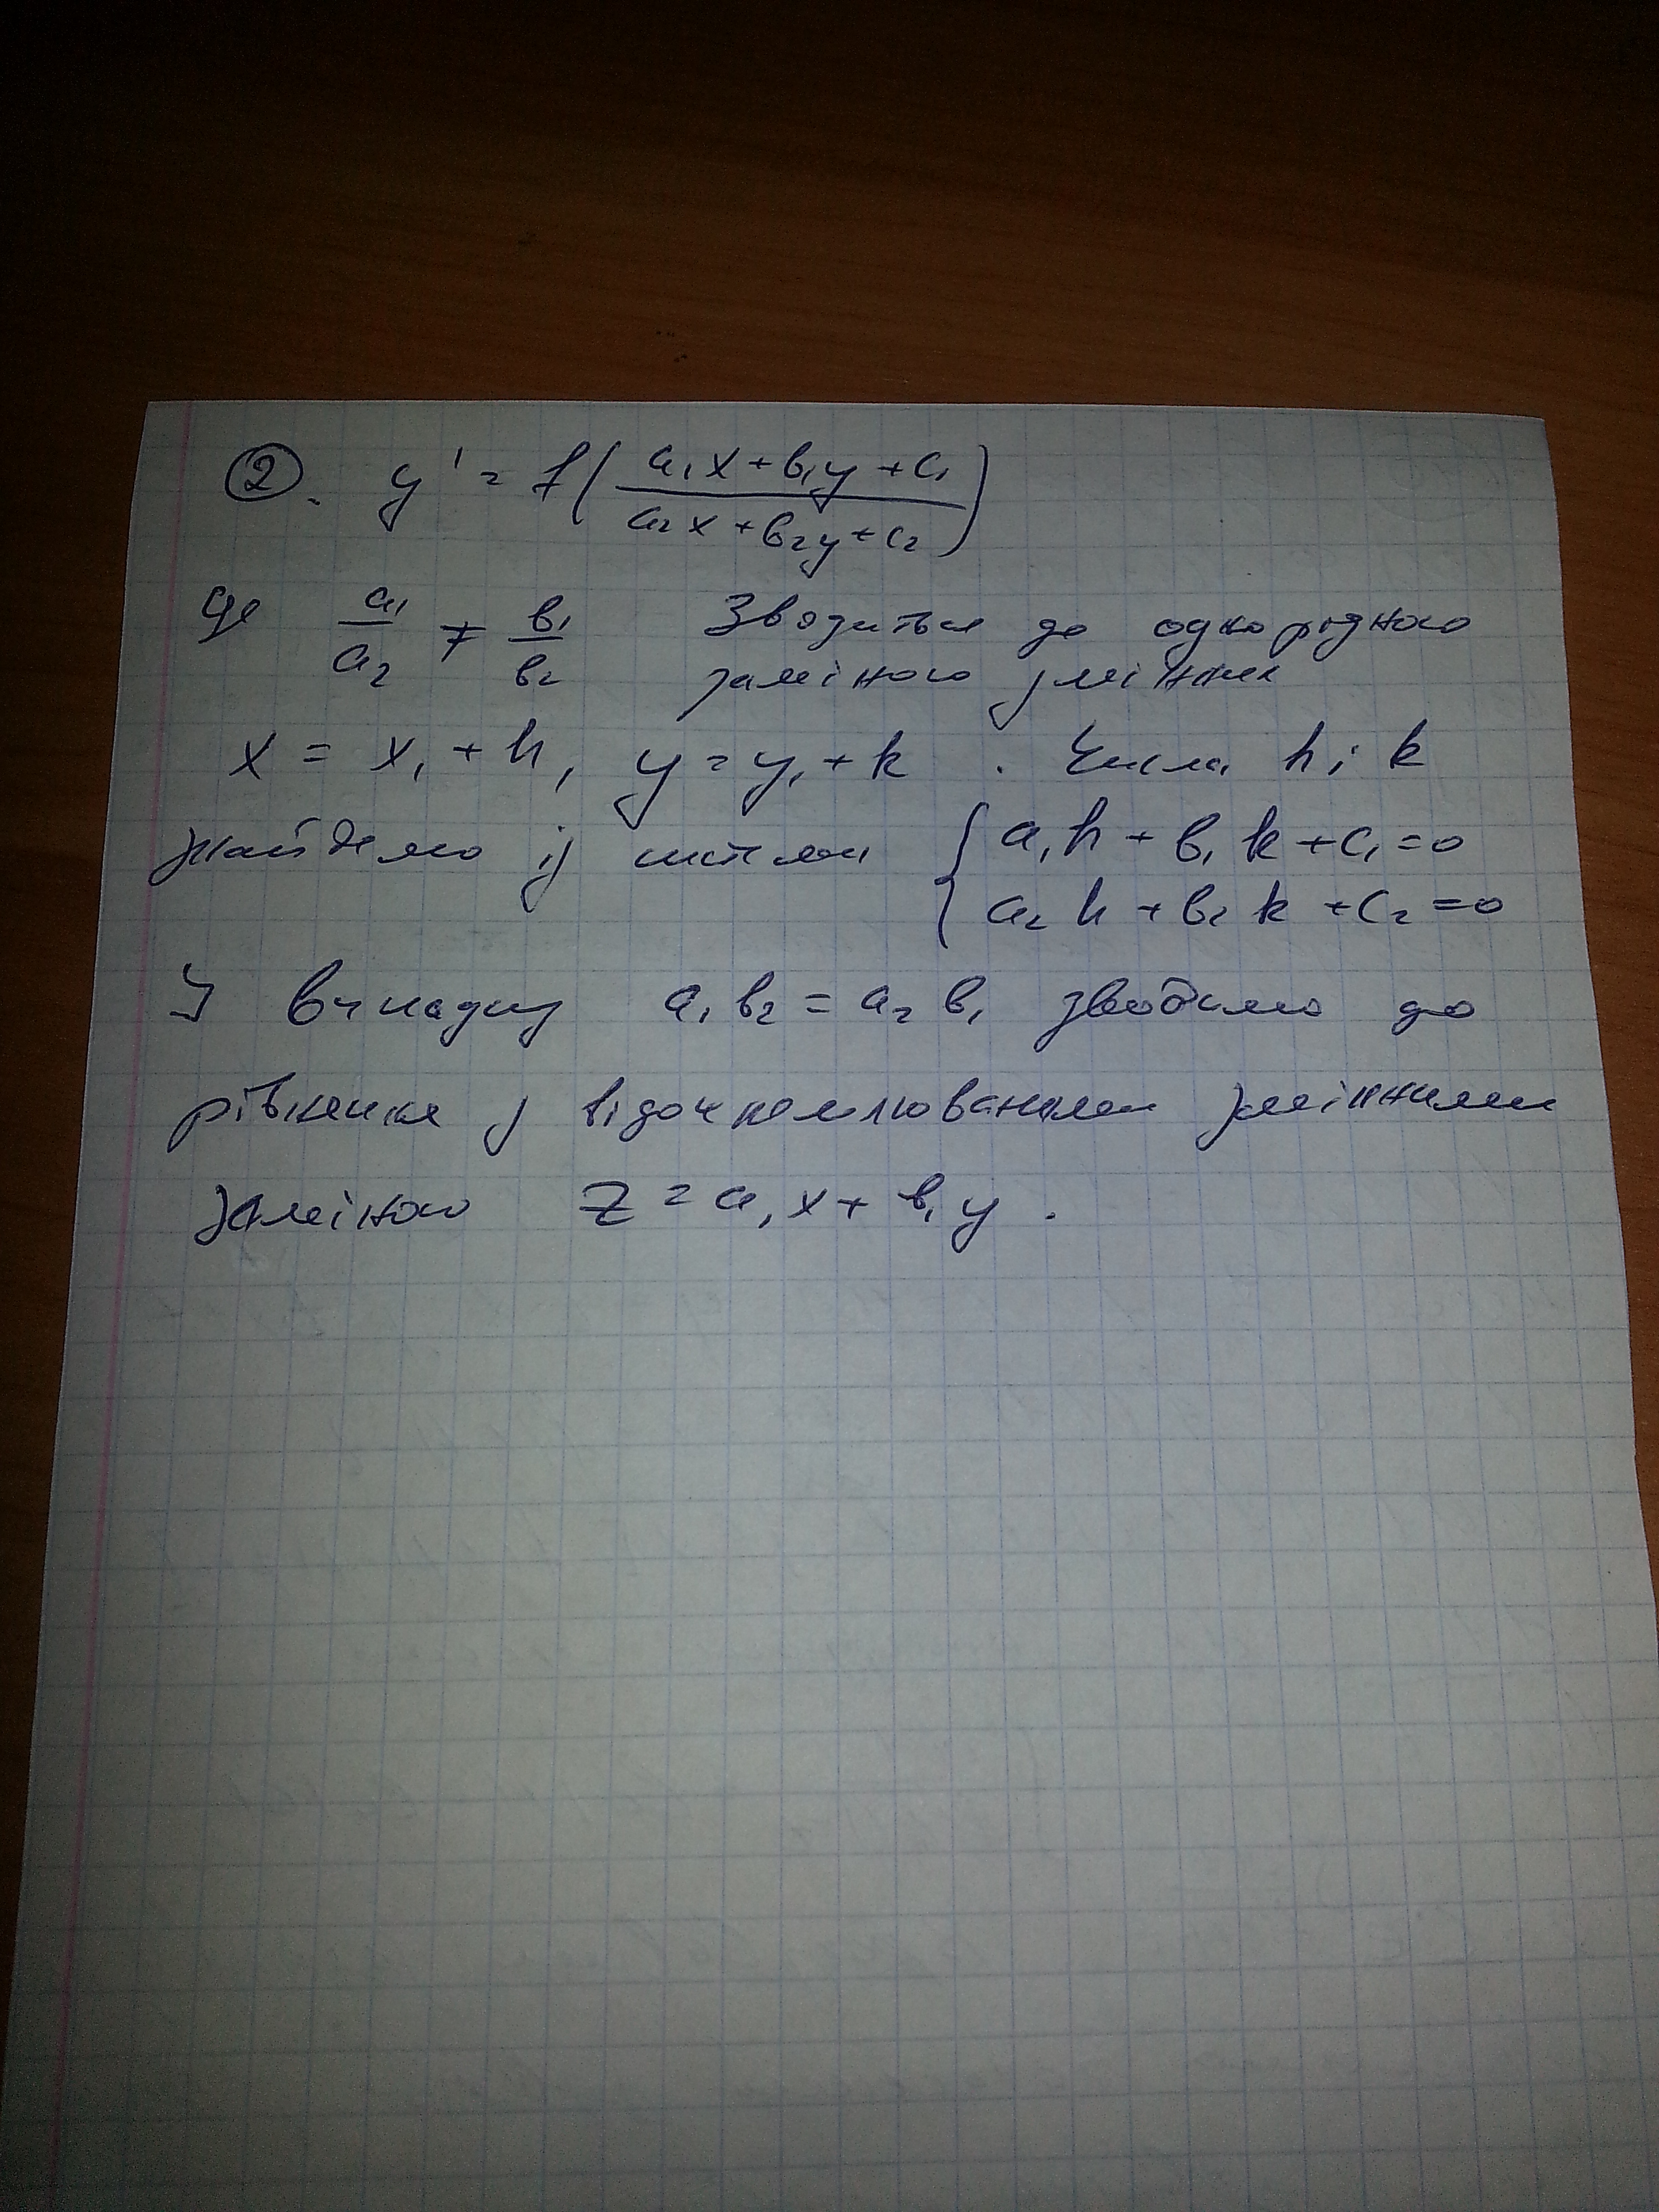 2. y' = f( (a₁x + b₁y + c₁) / (a₂x + b₂y + c₂) )
де a₁/a₂ ≠ b₁/b₂ Зводиться до однорідного
заміною змінних
x = x₁ + h, y = y₁ + k . Числа h і k
знайдемо із системи { a₁h + b₁k + c₁ = 0
a₂h + b₂k + c₂ = 0
У випадку a₁b₂ = a₂b₁ зводимо до
рівняння з відокремлюваними змінними
заміною z = a₁x + b₁y .